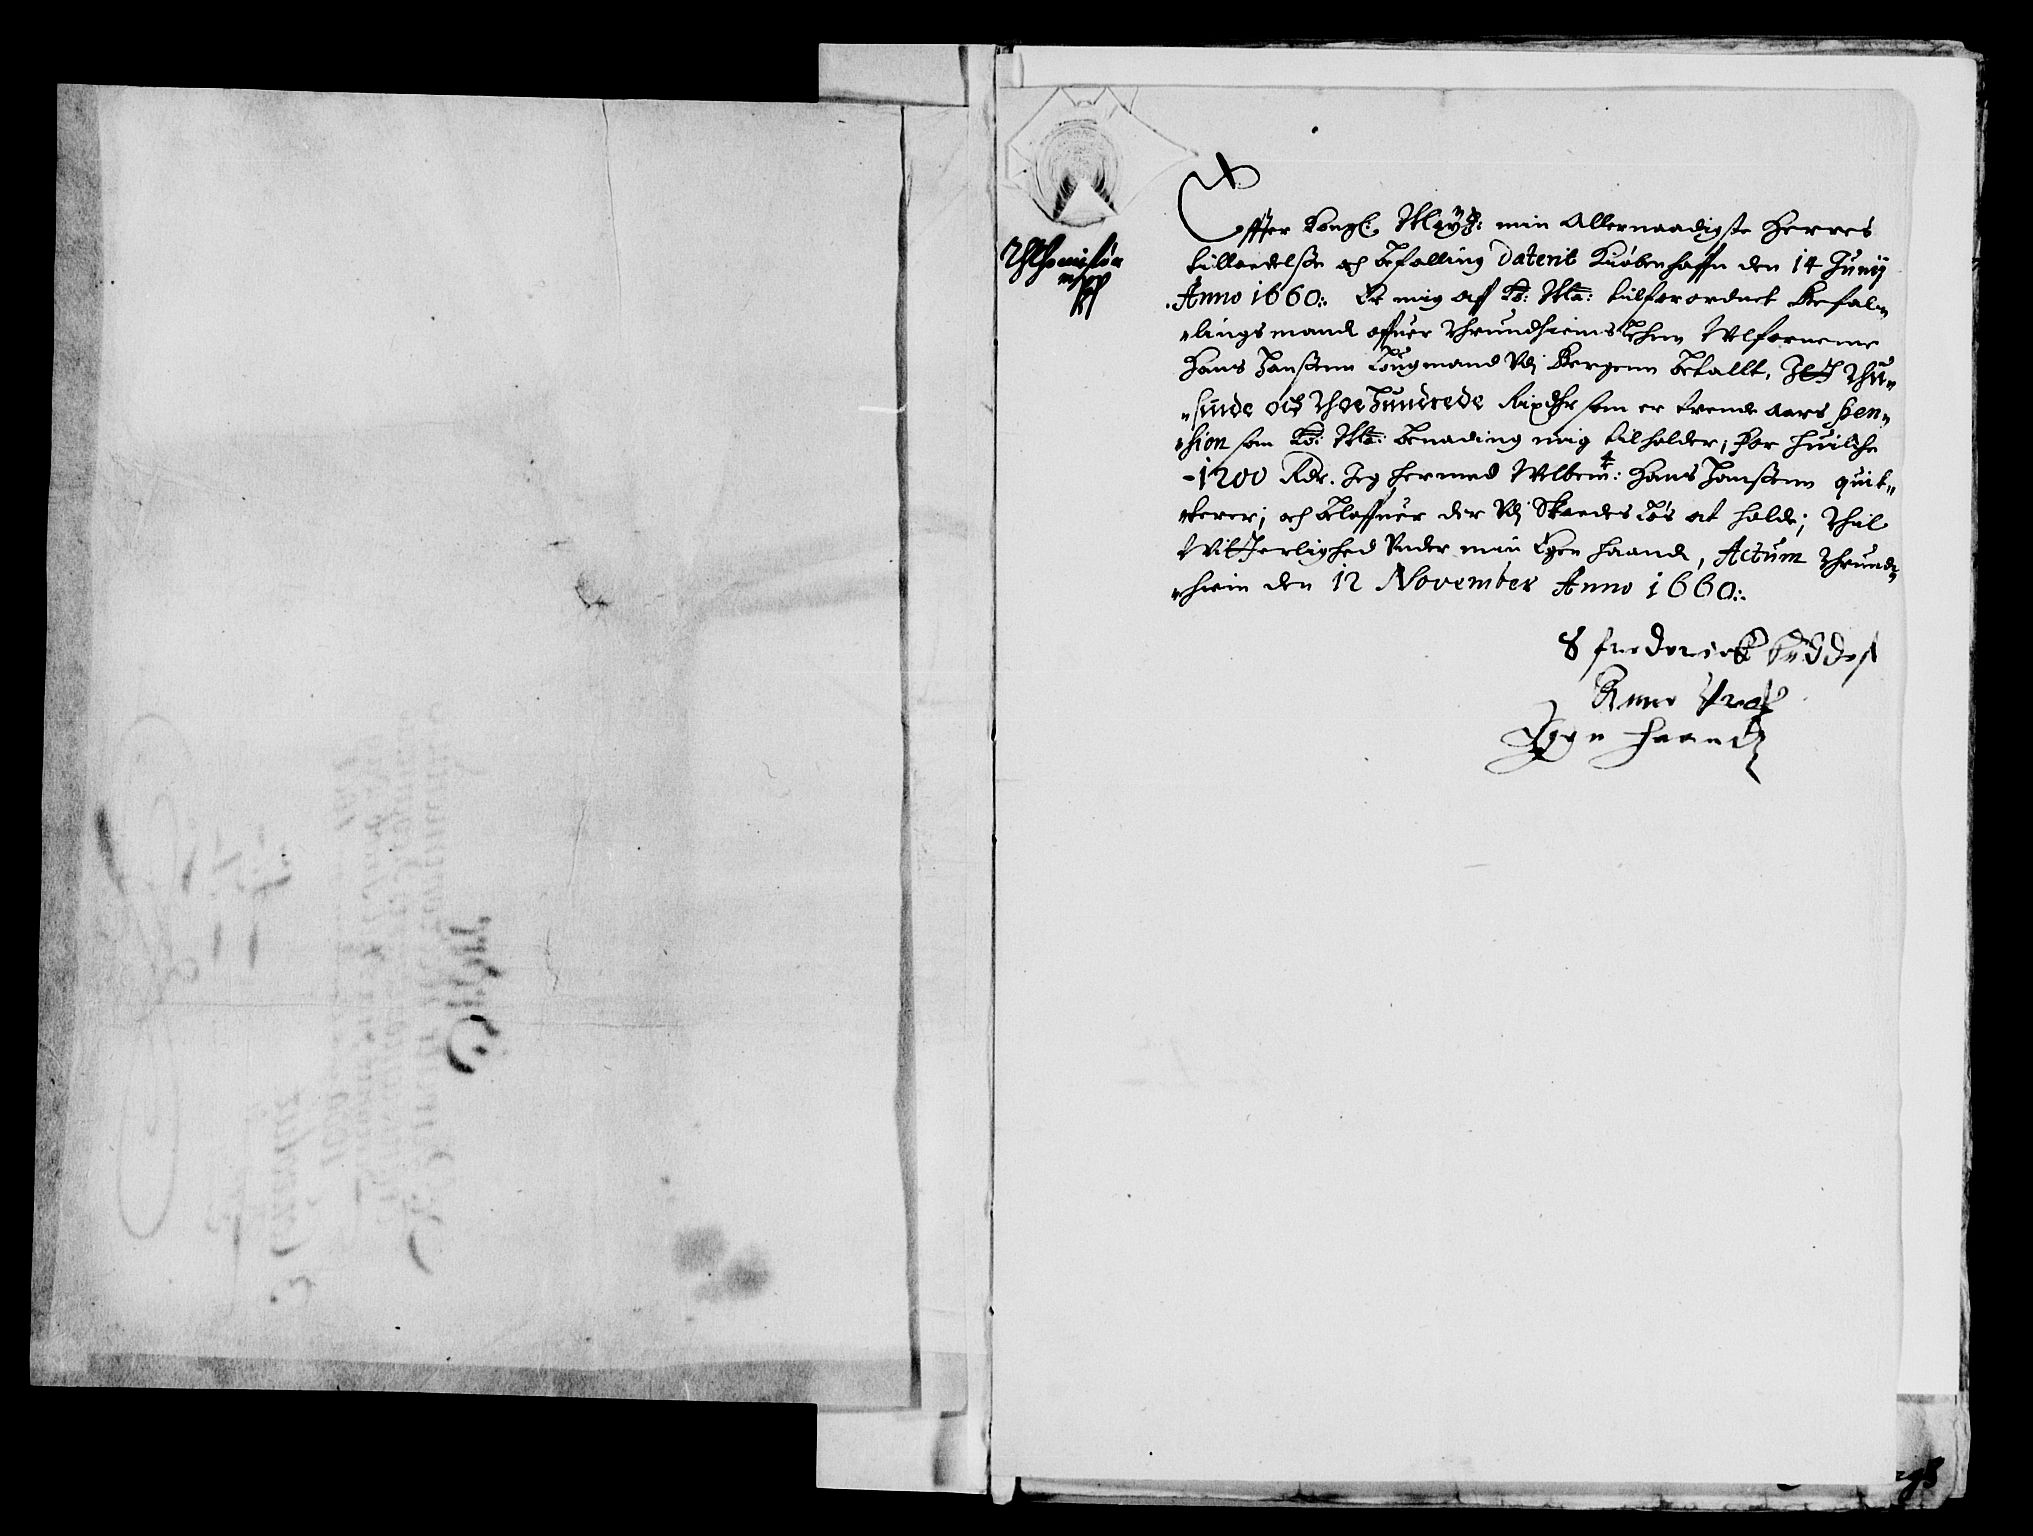 Effter Kongl: May:tz: min Allernaadigste Herres
tilladelsse och befalling Daterit Kiøbenhaffn den 14 Junij
Anno 1660:. Er mig aff Ko: Ma: tilforordnet Befal„
„lings mand offuer Thrundhiems Lehn Welforneme
Hans Hanssenn Laugmand Vdj Bergenn betallt, Thu„
„sinde och Thoe Hundrede Rixdlr som er trende aars Pen„
„sion som Ko: Ma: benading mig tilholder, for huilche
-1200 Rdr. Jeg hermed Welbem:t: Hans Hanssenn quit„
„terer; och beloffuer der Vdj Skades Løs at holde; Thil
Witterlighed Vnder min Egen haand, Actum Thrund„
„hiem den 12 November Anno 1660:.
S frederick
Egen haand